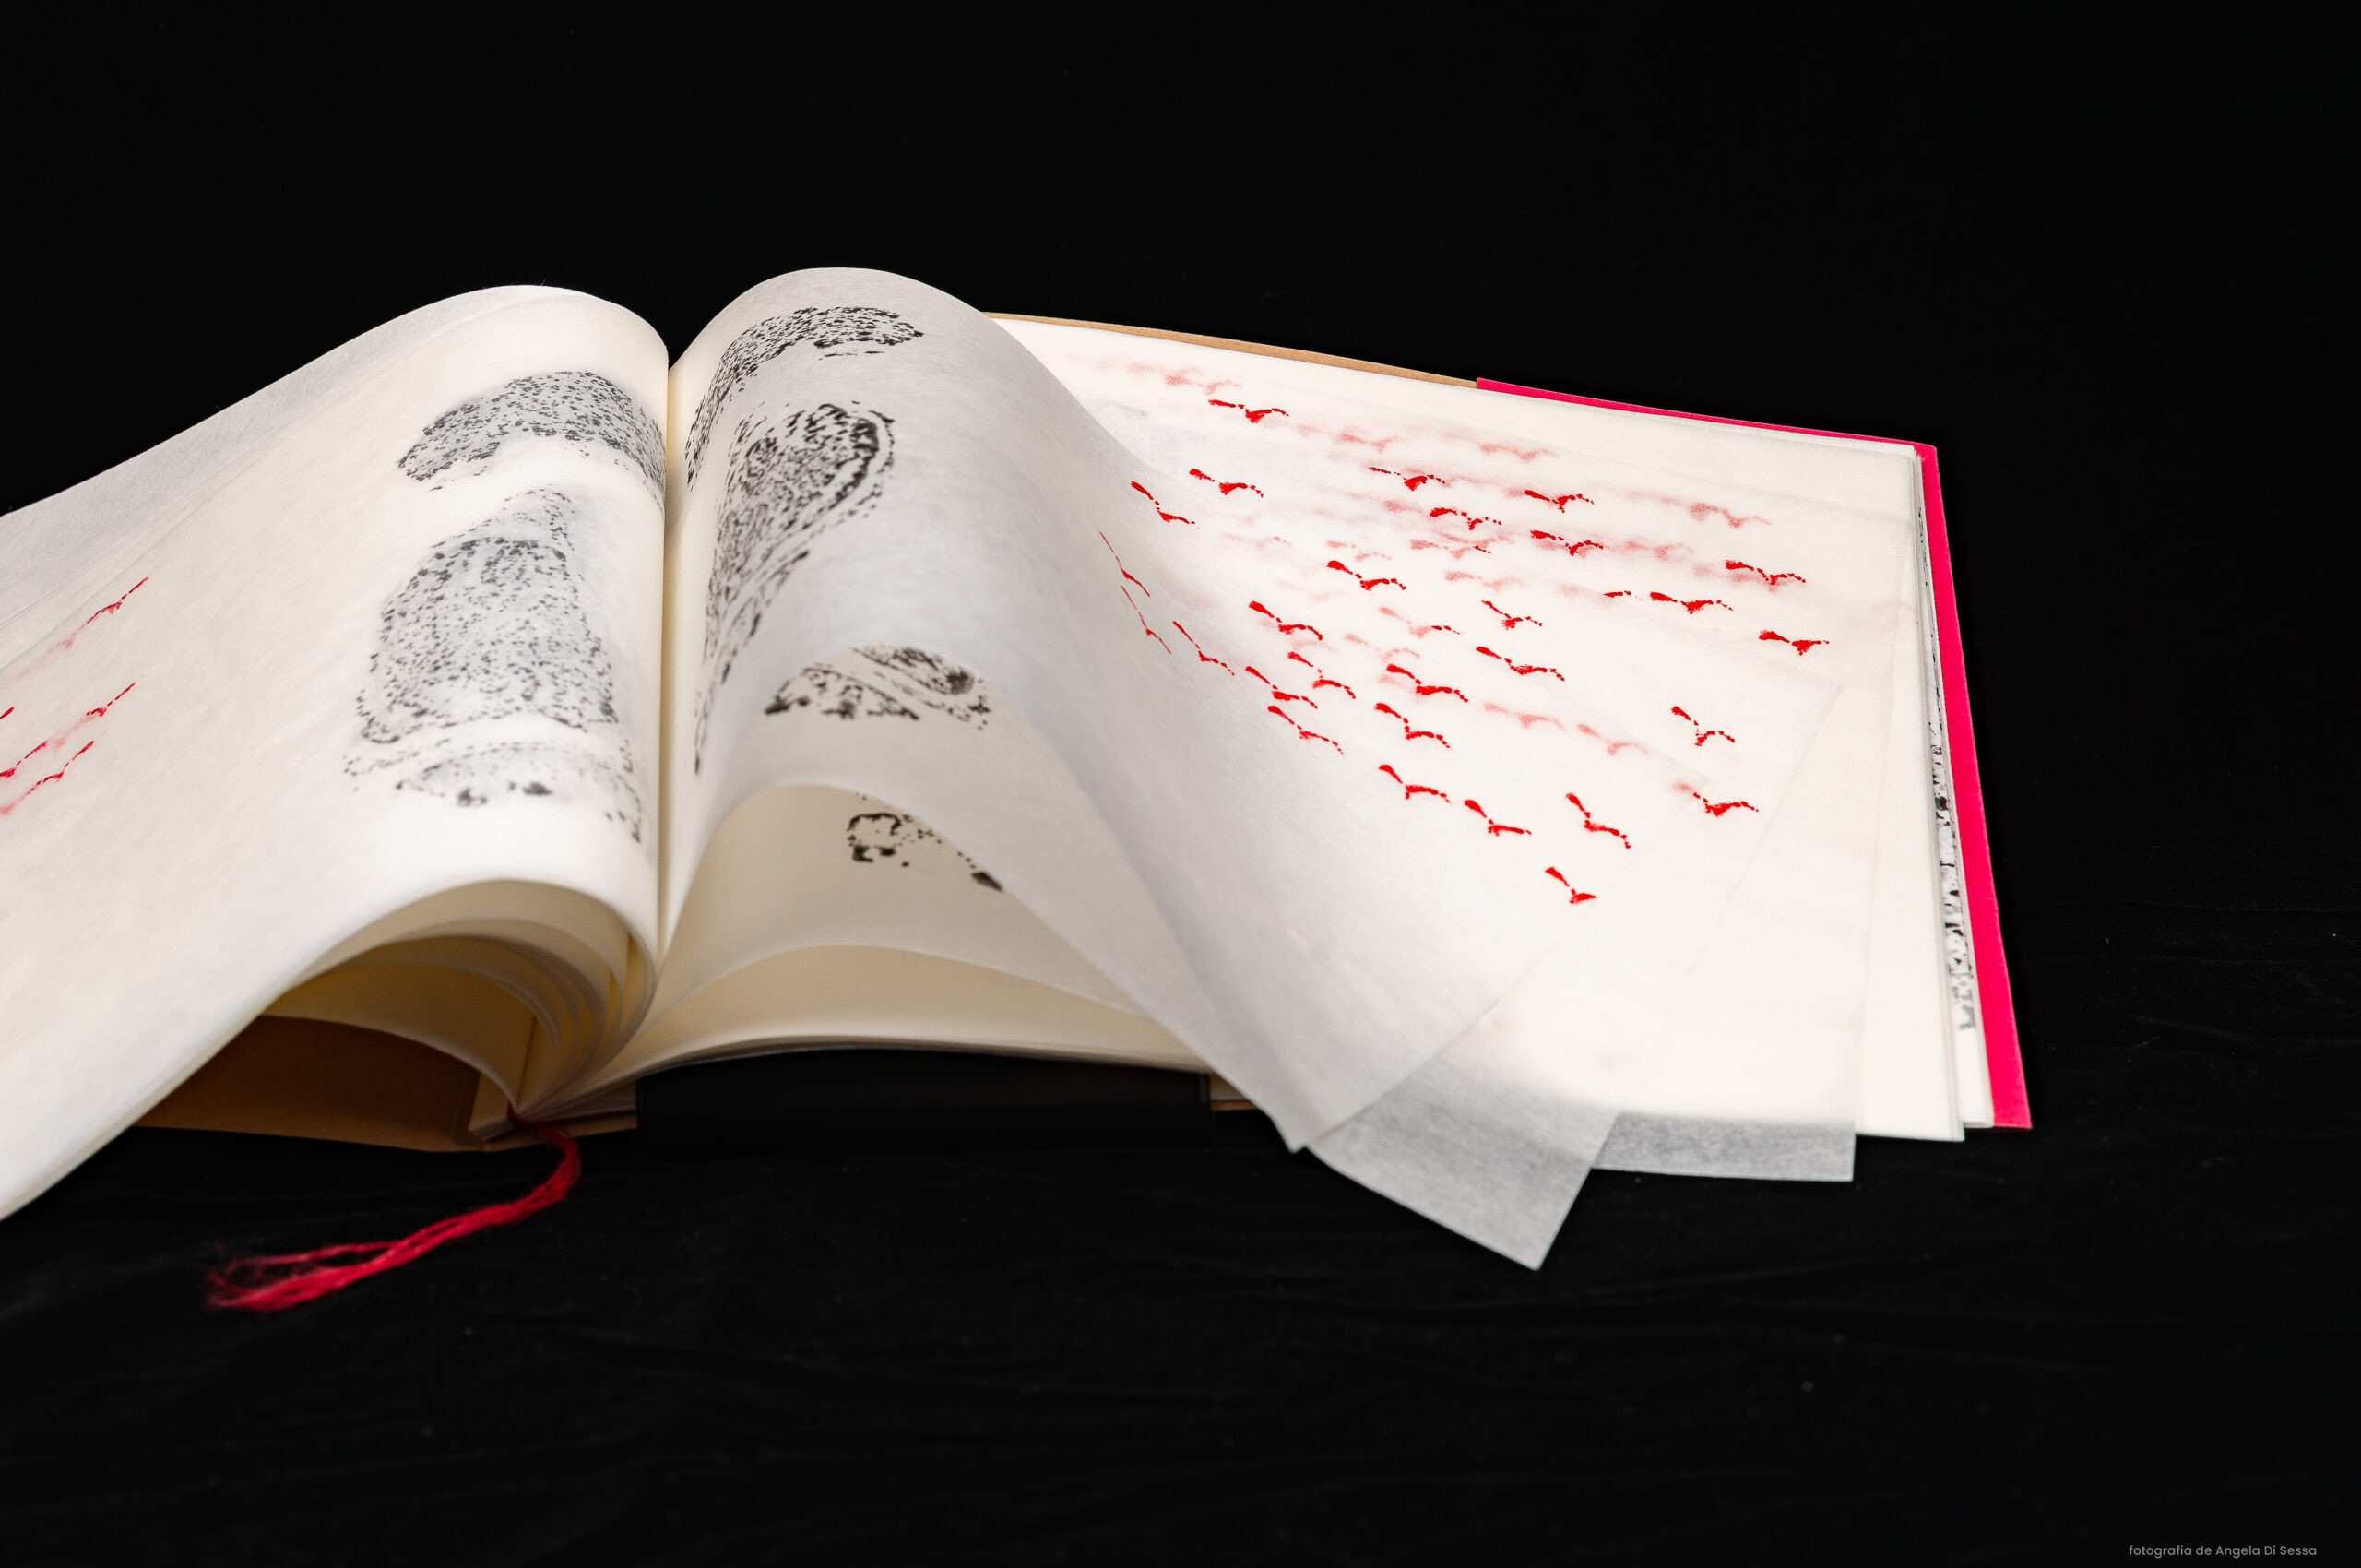 fotografia de Angela Di Sessa